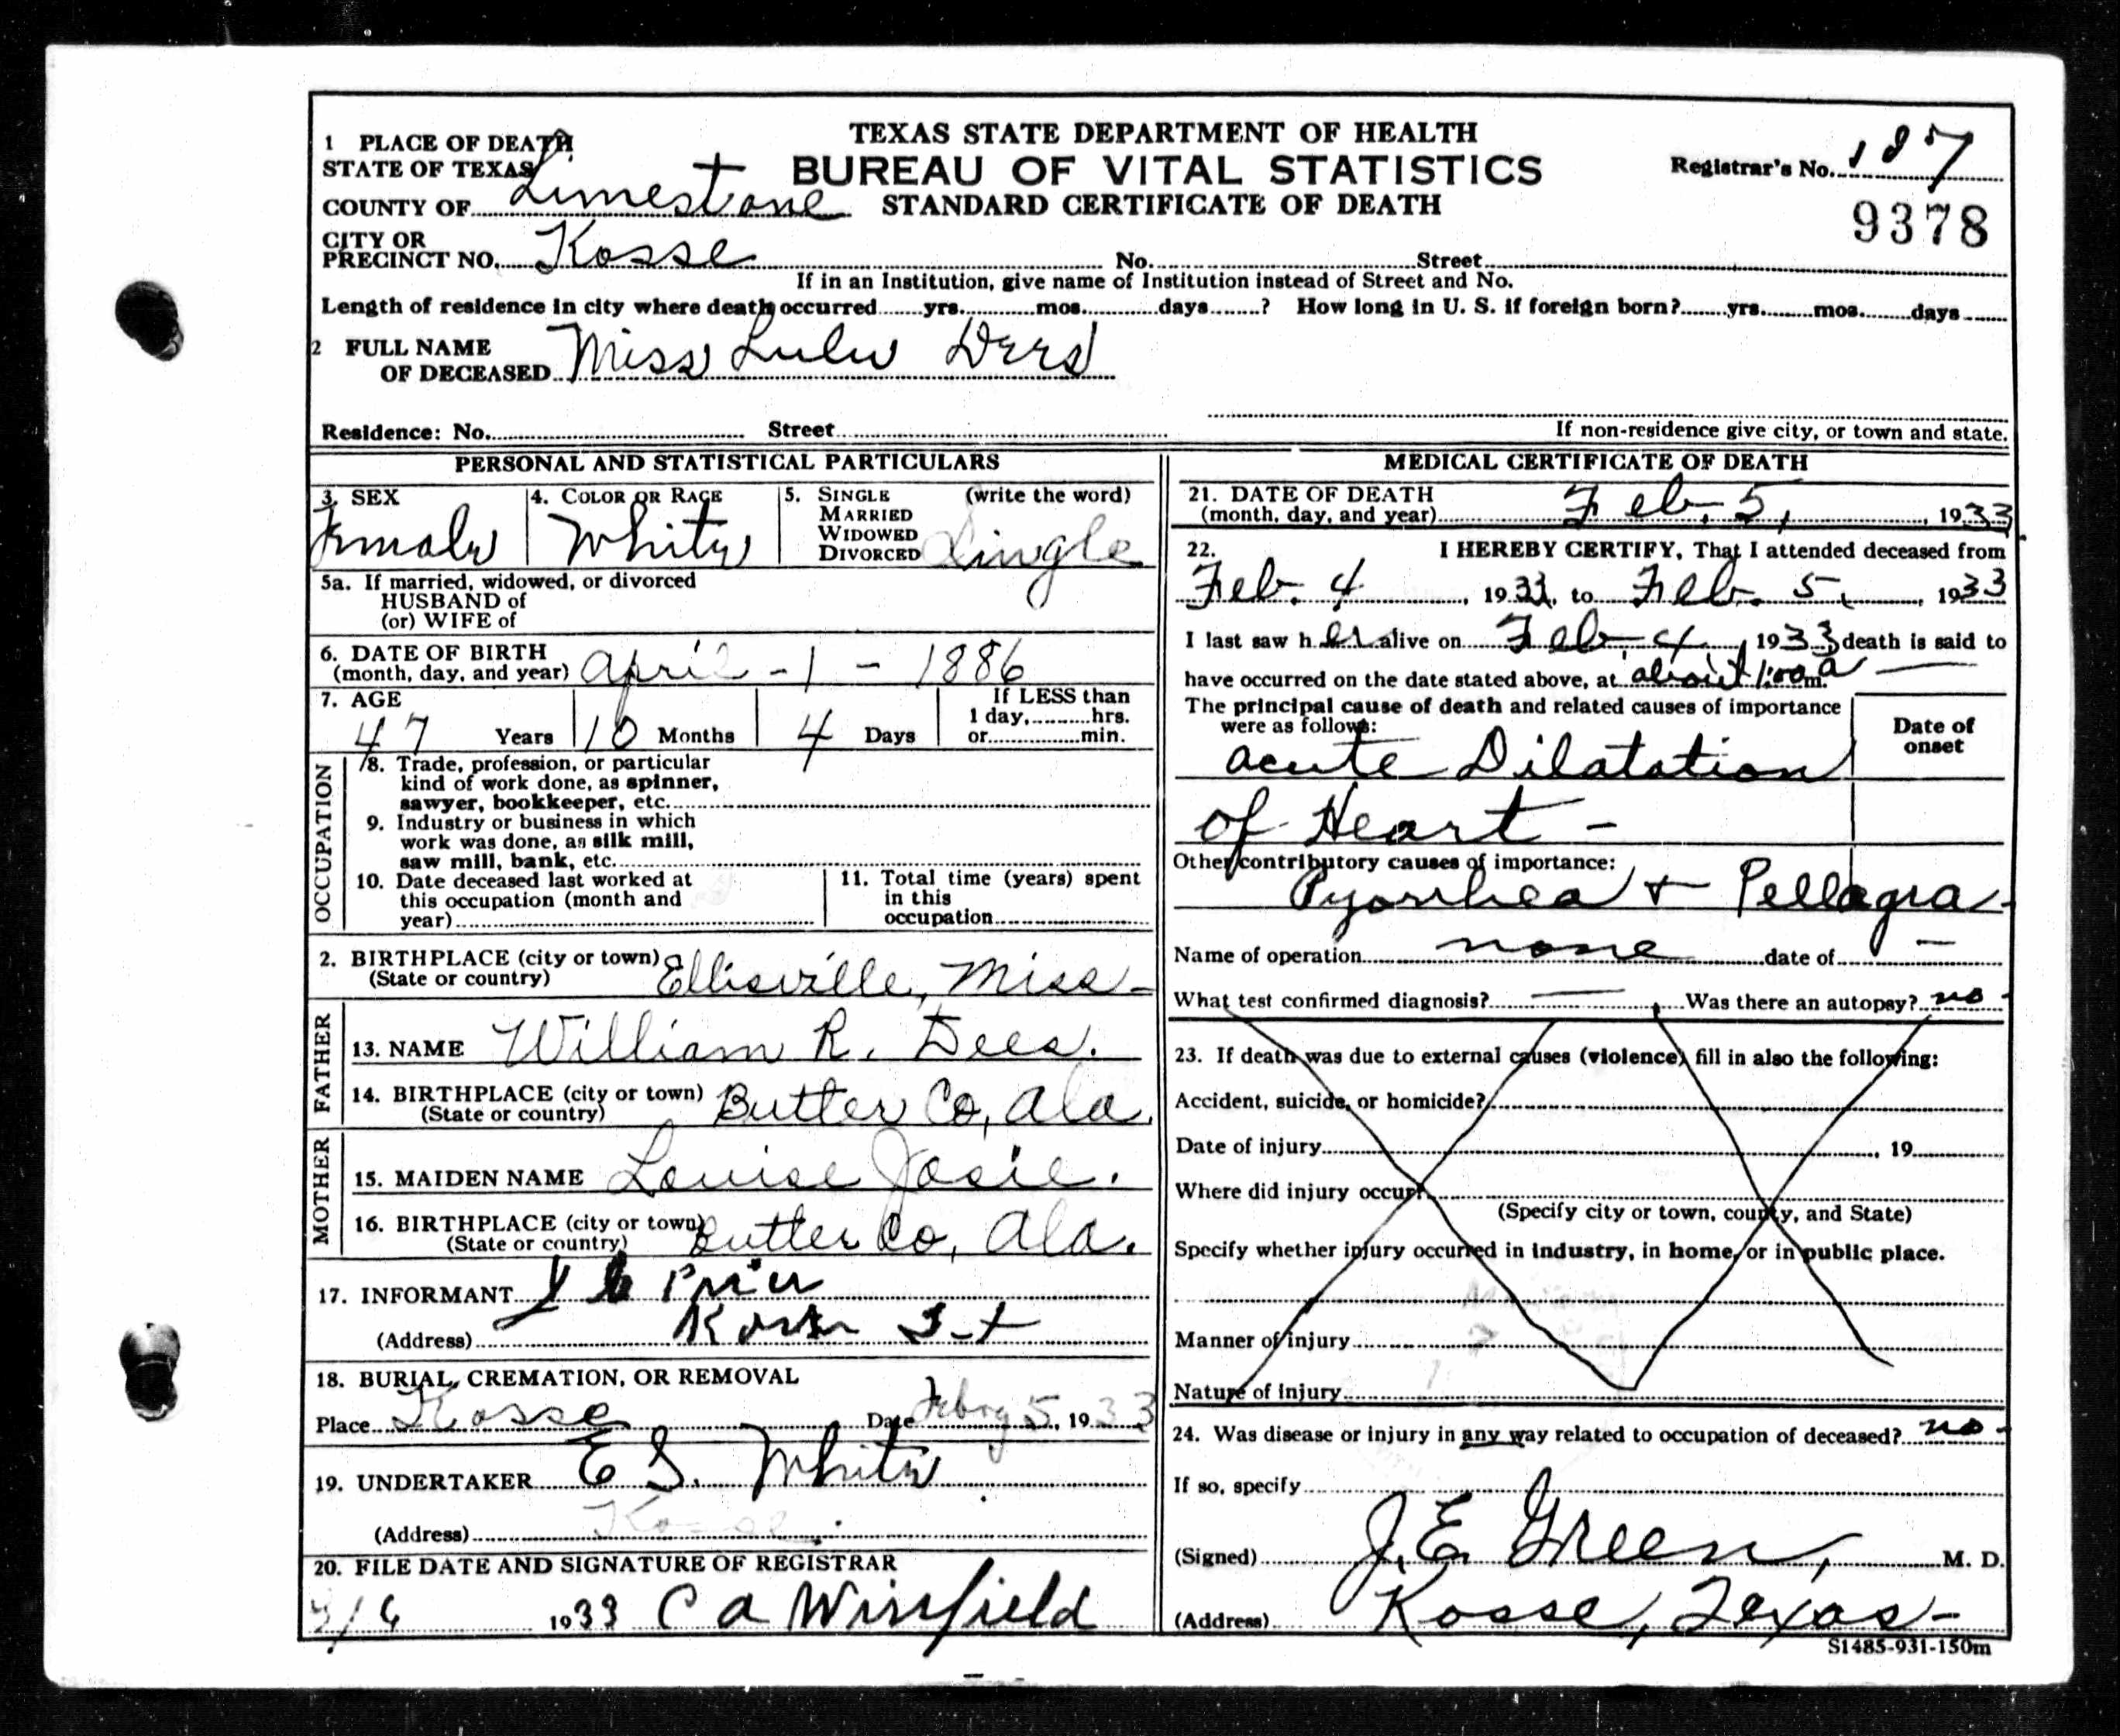 1 PLACE OF DEATH
STATE OF TEXAS
COUNTY OF Limestone
CITY OR
PRECINCT NO. Kosse No. Street
TEXAS STATE DEPARTMENT OF HEALTH
BUREAU OF VITAL STATISTICS
STANDARD CERTIFICATE OF DEATH
Registrar's No. 187
9378
If in an Institution, give name of Institution instead of Street and No.
Length of residence in city where death occurred yrs. mos. days ? How long in U. S. if foreign born? yrs. mos. days
2 FULL NAME
OF DECEASED Miss Lulu Dees
Residence: No. Street
If non-residence give city, or town and state.
PERSONAL AND STATISTICAL PARTICULARS
3. SEX Female
4. COLOR OR RACE White
5. SINGLE (write the word)
MARRIED
WIDOWED
DIVORCED Single
5a. If married, widowed, or divorced
HUSBAND of
(or) WIFE of
6. DATE OF BIRTH
(month, day, and year) April - 1 - 1886
7. AGE
47 Years 10 Months 4 Days
If LESS than
1 day, hrs.
or min.
OCCUPATION
8. Trade, profession, or particular
kind of work done, as spinner,
sawyer, bookkeeper, etc.
9. Industry or business in which
work was done, as silk mill,
saw mill, bank, etc.
10. Date deceased last worked at
this occupation (month and
year)
11. Total time (years) spent
in this
occupation
2. BIRTHPLACE (city or town)
(State or country) Ellisville, Miss -
FATHER
13. NAME William R. Dees.
14. BIRTHPLACE (city or town)
(State or country) Butler Co, Ala.
MOTHER
15. MAIDEN NAME Louise Josie.
16. BIRTHPLACE (city or town)
(State or country) Butler Co, Ala.
17. INFORMANT
(Address)
18. BURIAL, CREMATION, OR REMOVAL
Place Kosse Date Febry 5, 1933
19. UNDERTAKER E S. White
(Address) Kosse
20. FILE DATE AND SIGNATURE OF REGISTRAR
1933 C A Winfield
MEDICAL CERTIFICATE OF DEATH
21. DATE OF DEATH
(month, day, and year) Feb. 5, 1933
22. I HEREBY CERTIFY, That I attended deceased from
Feb. 4, 1933, to Feb. 5, 1933
I last saw her alive on Feb. 4, 1933 death is said to
have occurred on the date stated above, at about 1:00 a m.
The principal cause of death and related causes of importance
were as follows:
Date of
onset
acute Dilatation
of Heart -
Other contributory causes of importance:
Pyorrhea + Pellagra -
Name of operation none date of -
What test confirmed diagnosis? - Was there an autopsy? no -
23. If death was due to external causes (violence) fill in also the following:
Accident, suicide, or homicide?
Date of injury , 19
Where did injury occur?
(Specify city or town, county, and State)
Specify whether injury occurred in industry, in home, or in public place.
Manner of injury
Nature of injury
24. Was disease or injury in any way related to occupation of deceased? no -
If so, specify
(Signed) J. E. Green, M. D.
(Address) Kosse, Texas -
S1485-931-150m